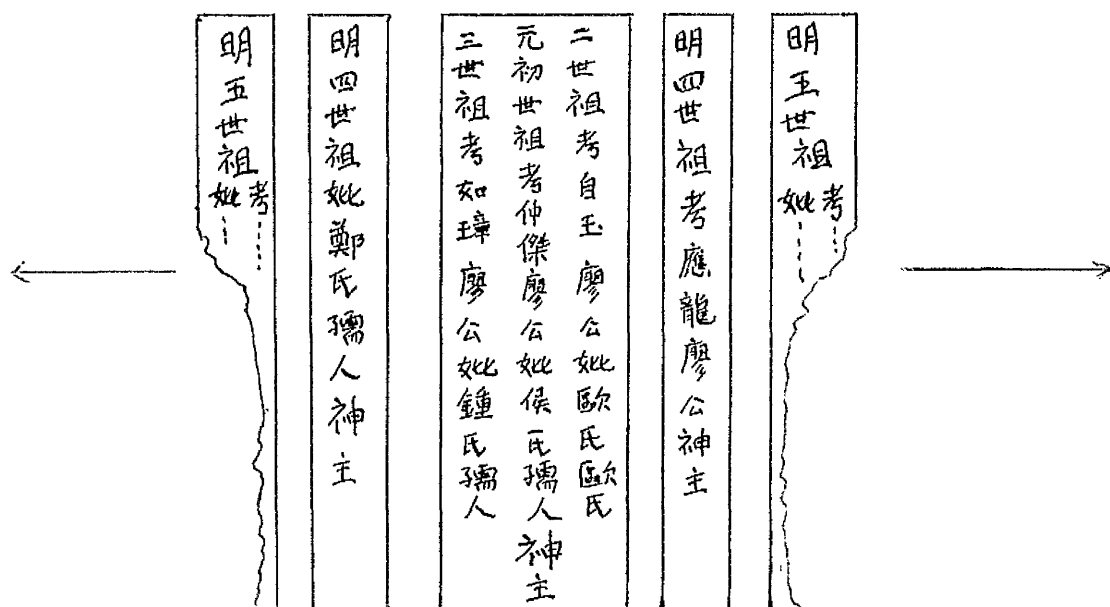 明五世祖
考
妣
明四世祖考應龍廖公神主
二世祖考自玉廖公妣歐氏歐氏
元初世祖考仲傑廖公妣侯氏孺人神主
三世祖考如璋廖公妣鍾氏孺人
明四世祖妣鄭氏孺人神主
明五世祖
考
妣